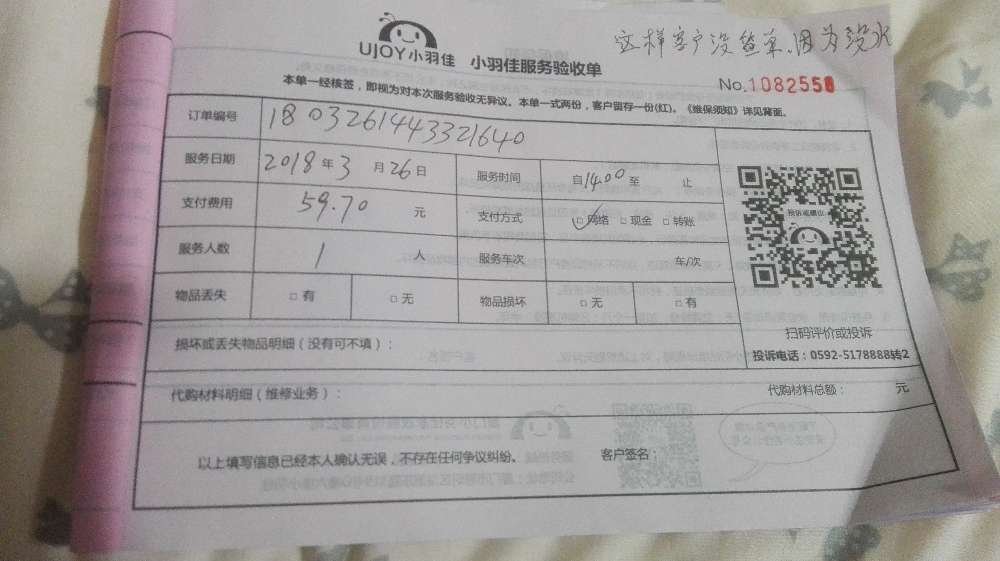 这样客户没签单,因为没水
UJOY小羽佳 小羽佳服务验收单
No.1082550
本单一经核签，即视为对本次服务验收无异议。本单一式两份，客户留存一份(红)。《维保须知》详见背面。
订单编号 1803261443321640
服务日期 2018年3月26日 服务时间 自14.00至 止
支付费用 59.70 元 支付方式 □网络 □现金 □转账
服务人数 1 人 服务车次 车/次
物品丢失 □有 □无 物品损坏 □无 □有
投诉或建议
扫码评价或投诉
投诉电话：0592-5178888转2
损坏或丢失物品明细（没有可不填）：
代购材料明细（维修业务）： 代购材料总额： 元
以上填写信息已经本人确认无误，不存在任何争议纠纷。 客户签名：